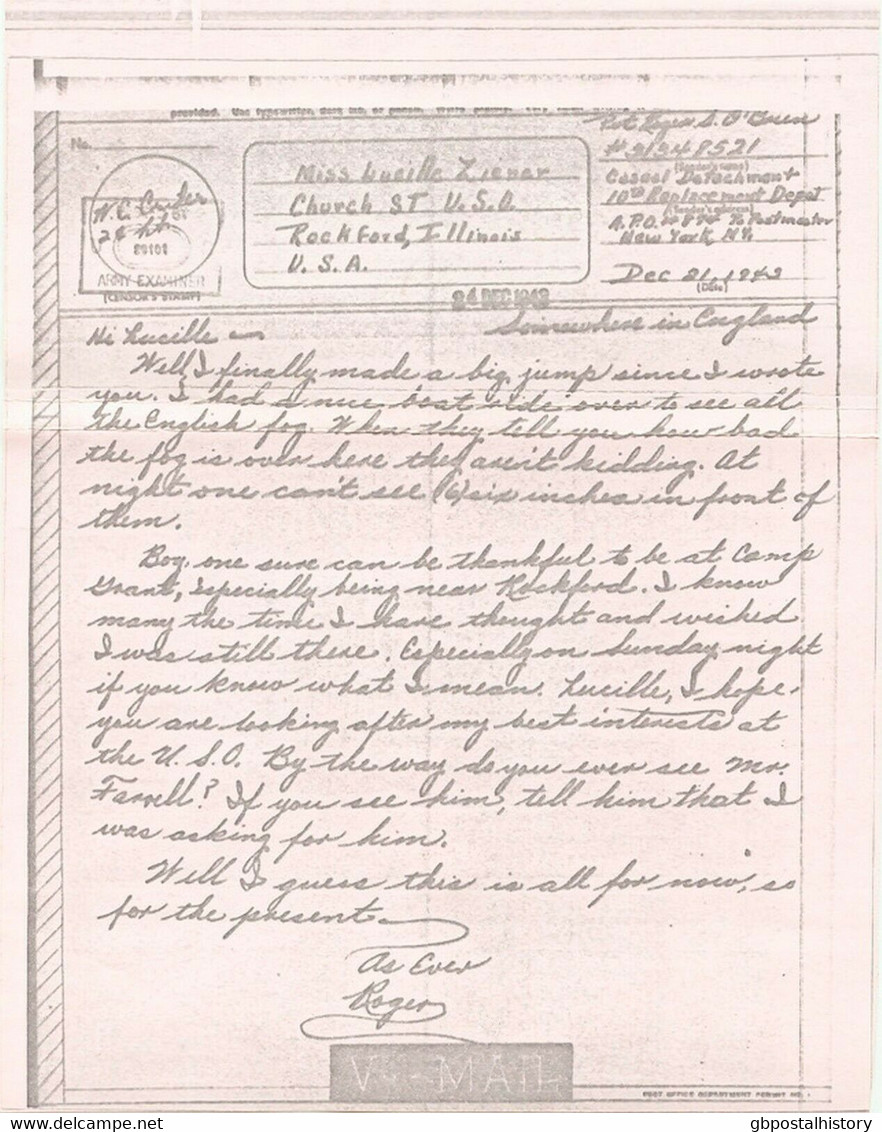 provided. Use typewriter, dark ink, or pencil. Write plainly. Very small writing is
No.
Pvt Roger S. O'Brien
# 31348521
(Sender's name)
Casual Detachment
10th Replacement Depot
(Sender's address)
A.P.O. % Postmaster
New York, NY.
Dec 21, 1943
(Date)
Miss Lucille Zienar
Church ST U.S.O.
Rockford, Illinois
U.S.A.
W.C.
2d Lt.
ARMY EXAMINER
(CENSOR'S STAMP)
24 DEC 1943
Somewhere in England
Hi Lucille –
Well, I finally made a big jump since I wrote
you. I had a nice boat ride over to see all
the English fog. When they tell you how bad
the fog is over here they aren't kidding. At
night one can't see (6) six inches in front of
them.
Boy, one sure can be thankful to be at Camp
Grant, especially being near Rockford. I know
many the time I have thought and wished
I was still there. Especially on Sunday night
if you know what I mean. Lucille, I hope
you are looking after my best interests at
the U.S.O. By the way do you ever see Mr.
Farrell? If you see him, tell him that I
was asking for him.
Well I guess this is all for now, so
for the present.
As Ever
Roger
V···–MAIL
POST OFFICE DEPARTMENT PERMIT NO.
gbpostalhistory